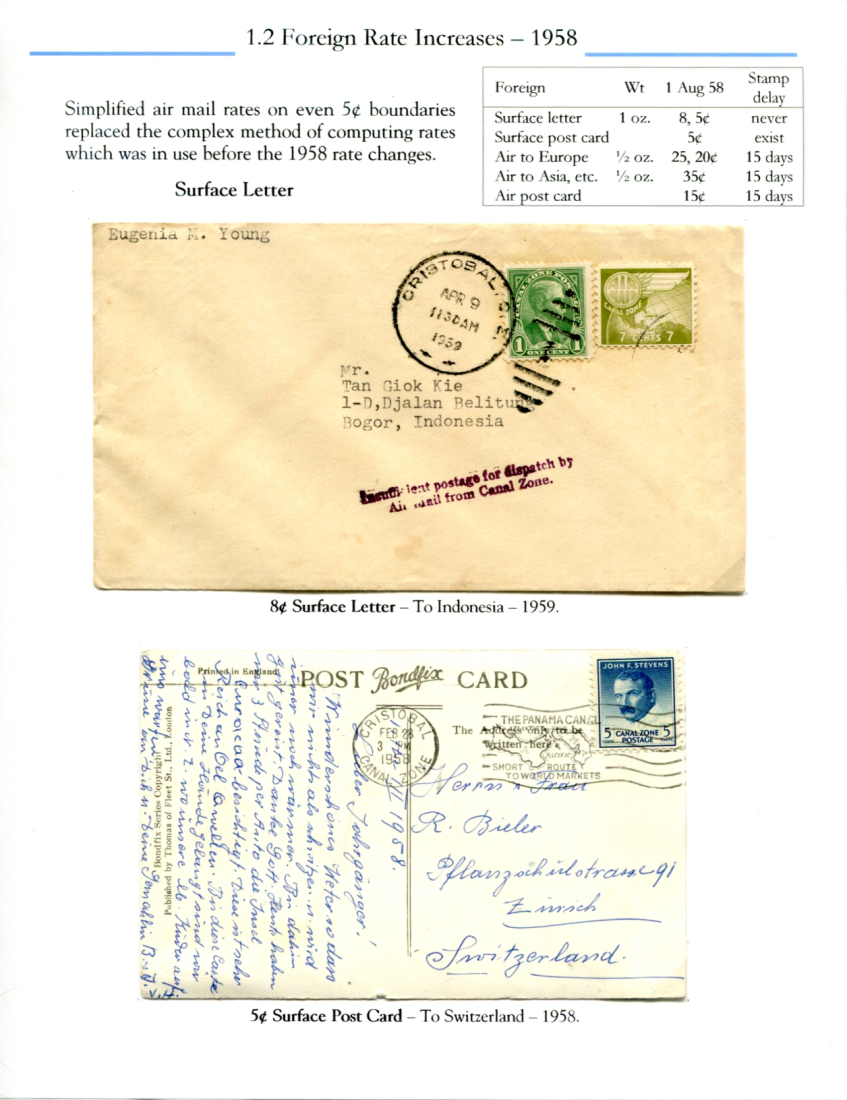 1.2 Foreign Rate Increases – 1958
Simplified air mail rates on even 5¢ boundaries
replaced the complex method of computing rates
which was in use before the 1958 rate changes.
Foreign Wt 1 Aug 58 Stamp delay
Surface letter 1 oz. 8, 5¢ never
Surface post card 5¢ exist
Air to Europe ½ oz. 25, 20¢ 15 days
Air to Asia, etc. ½ oz. 35¢ 15 days
Air post card 15¢ 15 days
Surface Letter
Eugenia M. Young
CRISTOBAL,
APR 9
1130AM
1959
CANAL ZONE POSTAGE
1 1
ONE CENT
CANAL ZONE
7 CENTS 7
Mr.
Tan Giok Kie
1-D,Djalan Belitung
Bogor, Indonesia
Insufficient postage for dispatch by
Air Mail from Canal Zone.
8¢ Surface Letter – To Indonesia – 1959.
Printed in England
POST Bondfix CARD
Bondfix Series Copyright
Published by Thomas of Fleet St., Ltd., London
JOHN F. STEVENS
5 CANAL ZONE 5
POSTAGE
CRISTOBAL
FEB 28
3 PM
1958
CANAL ZONE
THE PANAMA CANAL
PACIFIC
SHORT ROUTE
TO WORLD MARKETS
The Address only to be
written here
1958.
Lieber Jahrgänger!
Wunderschönes Weter so dass
wir nichts als schwitzen u. wird
immer noch wärmer. Bin dahin
gut gereist Danke Gott. Heute haben
wir 3 Stunde per Auto die Insel
Curacao besichtigt. Diese ist sehr
Reich an Oel Quellen. Bis diese Carte
in Deine Hände gelangt sind wir
bald in N. Z. wo unsere lb. Kinder auf
uns warten.
Herrn u Frau
R. Bieler
Pflanzschulstrasse 91
Zürich
Switzerland.
5¢ Surface Post Card – To Switzerland – 1958.